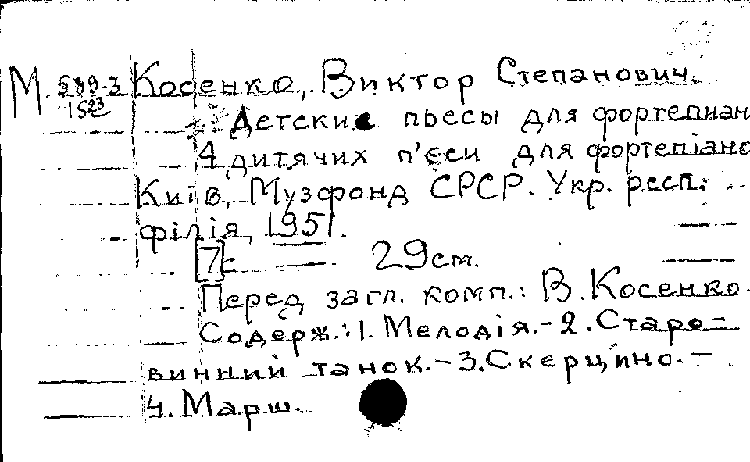 М. 589-3 Косенко, Виктор Степанович.
1523
Детские пьесы для фортепиан
4 дитячих п'єси для фортепіано
Київ, Музфонд СРСР. Укр. респ.
філія, 1951.
7с 29см.
Перед загл. комп.: В. Косенко.
Содерж.: 1. Мелодія.-2. Старо-
винний танок.-3. Скерцино.-
4. Марш.